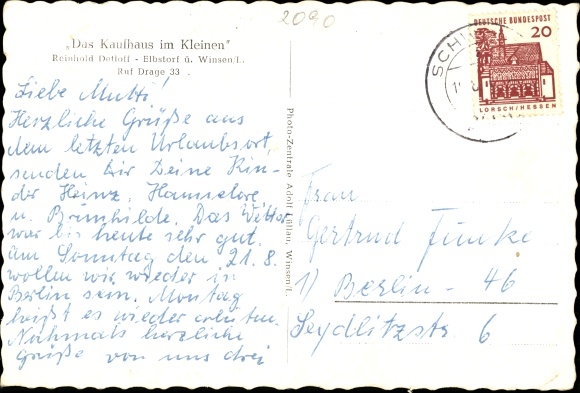 2090
„Das Kaufhaus im Kleinen"
Reinhold Detloff - Elbstorf ü. Winsen/L.
Ruf Drage 33
Liebe Mutti!
Herzliche Grüße aus
dem letzten Urlaubsort,
senden Dir Deine Kin-
der Heinz, Hannelore,
u. Brunhilde. Das Wetter
war bis heute sehr gut.
Am Sonntag den 21.8.
wollen wir wieder in
Berlin sein. Montag
heißt es wieder arbeiten.
Nochmals herzliche
Grüße von uns drei
Photo-Zentrale Adolf Lüllau, Winsen/L.
DEUTSCHE BUNDESPOST
20
LORSCH/HESSEN
Frau
Gertrud Funke
1) Berlin - 46
Seydlitzstr. 6